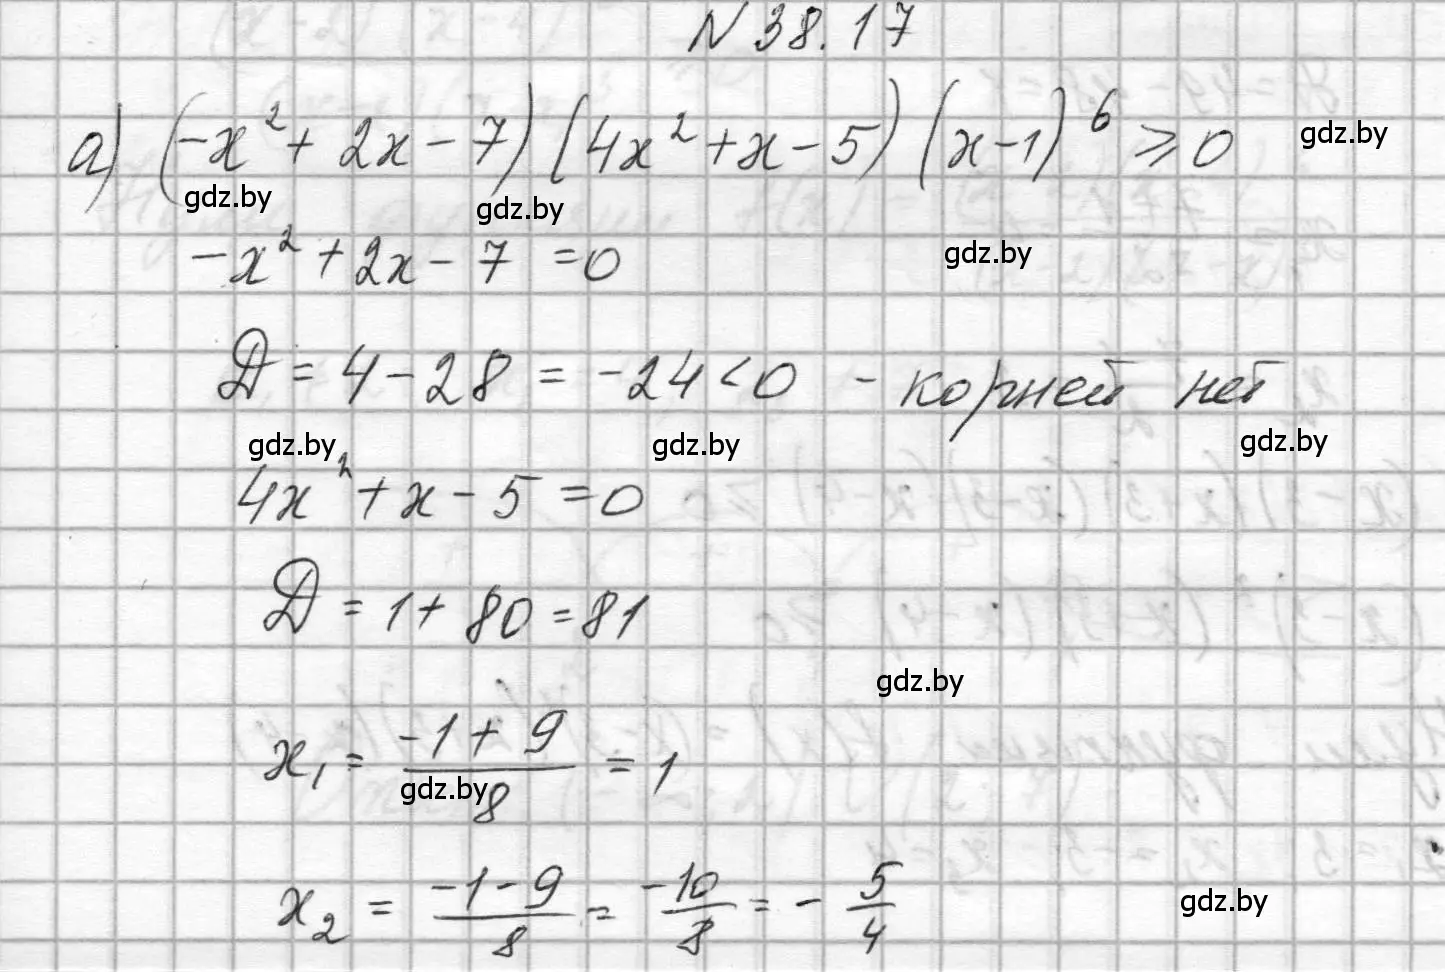 N 38.17
а) (-x² + 2x - 7)(4x² + x - 5)(x - 1)⁶ ⩾ 0
gdz.by
gdz.by
gdz.by
-x² + 2x - 7 = 0
gdz.by
D = 4 - 28 = -24 < 0 - корней нет
gdz.by
gdz.by
gdz.by
4x² + x - 5 = 0
D = 1 + 80 = 81
gdz.by
x₁ = (-1 + 9)/8 = 1
gdz.by
x₂ = (-1 - 9)/8 = -10/8 = - 5/4
gdz.by